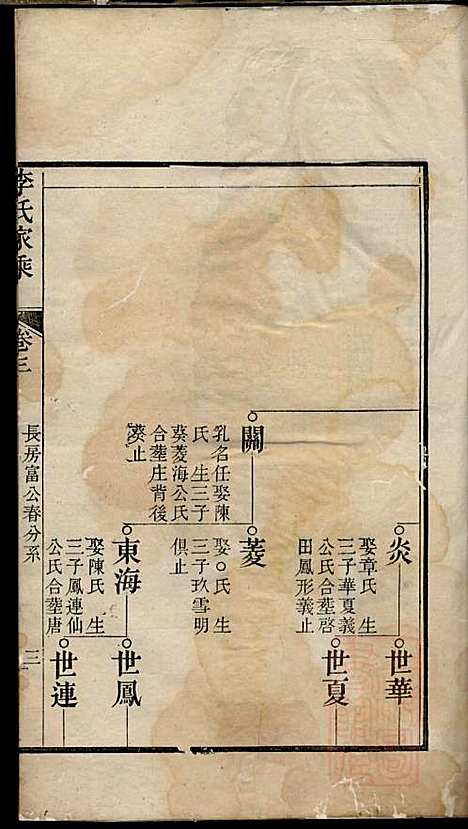 炎
娶章氏 生
三子華夏義
公氏合塟啓
田鳳形義止
世華
世夏
關
乳名任娶陳
氏 生三子
葵菱海公氏
合塟庄背後
葵止
菱
娶○氏 生
三子玖雪明
俱止
東海
娶陳氏 生
三子鳳連仙
公氏合塟唐
世鳳
世連
李氏家乘
卷三
長房富公春分系
三